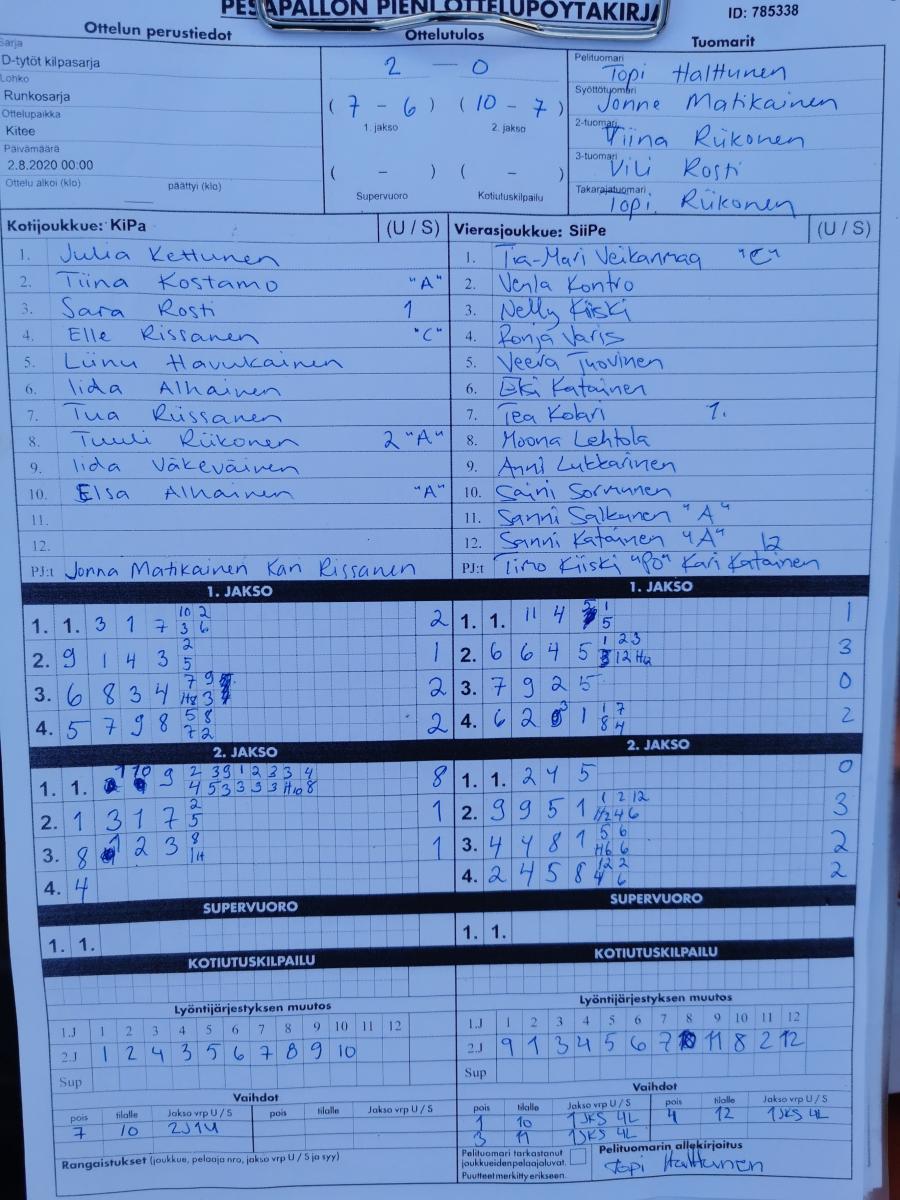 PESÄPALLON PIENI OTTELUPÖYTÄKIRJA
ID: 785338
Ottelun perustiedot
Ottelutulos
Tuomarit
Sarja
D-tytöt kilpasarja
Lohko
Runkosarja
Ottelupaikka
Kitee
Päivämäärä
2.8.2020 00:00
Ottelu alkoi (klo) päättyi (klo)
2 - 0
( 7 - 6 ) ( 10 - 7 )
1. jakso 2. jakso
( - ) ( - )
Supervuoro Kotiutuskilpailu
Pelituomari
Topi Halttunen
Syöttötuomari
Jonne Matikainen
2-tuomari
Tiina Riikonen
3-tuomari
Vili Rosti
Takarajatuomari
Topi Riikonen
Kotijoukkue: KiPa (U / S)
1. Julia Kettunen
2. Tiina Kostamo "A"
3. Sara Rosti 1
4. Elle Rissanen "C"
5. Liinu Havukainen
6. Iida Alhainen
7. Tua Riissanen
8. Tuuli Riikonen 2 "A"
9. Iida Väkeväinen
10. Elsa Alhainen "A"
11.
12.
PJ:t Jonna Matikainen Kari Rissanen
Vierasjoukkue: SiiPe (U / S)
1. Tia-Mari Veikanmaa "C"
2. Venla Kontro
3. Nelly Kiiski
4. Ronja Varis
5. Veera Tuovinen
6. Katainen
7. Tea Kolari 1.
8. Moona Lehtola
9. Anni Lukkarinen
10. Saini Sorvunen
11. Sanni Salkunen "A"
12. Sanni Katainen "A" 12
PJ:t Timo Kiiski "PÖ" Kari Katainen
1. JAKSO
1. 1. 3 1 7 10 2 2
3 6
2. 9 1 4 3 2 1
5
3. 6 8 3 4 7 9 2
H8 3
4. 5 7 9 8 5 8 2
7 2
1. JAKSO
1. 1. 11 4 1 1
5
2. 6 6 4 5 1 2 3 3
12 H12
3. 7 9 2 5 0
4. 6 2 3 1 1 7 2
8 4
2. JAKSO
1. 1. 1 10 9 2 3 9 1 2 3 3 4 8
4 5 3 3 3 3 H10 8
2. 1 3 1 7 2 1
5
3. 8 1 2 3 8 1
1H
4. 4
2. JAKSO
1. 1. 2 4 5 0
2. 9 9 5 1 1 2 12 3
H2 4 6
3. 4 4 8 1 5 6 2
H6 6
4. 2 4 5 8 12 2 2
4 6
SUPERVUORO
1. 1.
SUPERVUORO
1. 1.
KOTIUTUSKILPAILU
KOTIUTUSKILPAILU
Lyöntijärjestyksen muutos
1.J 1 2 3 4 5 6 7 8 9 10 11 12
2.J 1 2 4 3 5 6 7 8 9 10
Sup
Lyöntijärjestyksen muutos
1.J 1 2 3 4 5 6 7 8 9 10 11 12
2.J 9 1 3 4 5 6 7 10 11 8 2 12
Sup
Vaihdot
pois tilalle Jakso vrp U / S pois tilalle Jakso vrp U / S
7 10 2J1U
Vaihdot
pois tilalle Jakso vrp U / S pois tilalle Jakso vrp U / S
1 10 1JKS 4L 4 12 1JKS 4L
3 11 1JKS 4L
Rangaistukset (joukkue, pelaaja nro, jakso vrp U / S ja syy)
Pelituomari tarkastanut
joukkueidenpelaajaluvat.
Puutteet merkitty erikseen.
Pelituomarin allekirjoitus
Topi Halttunen